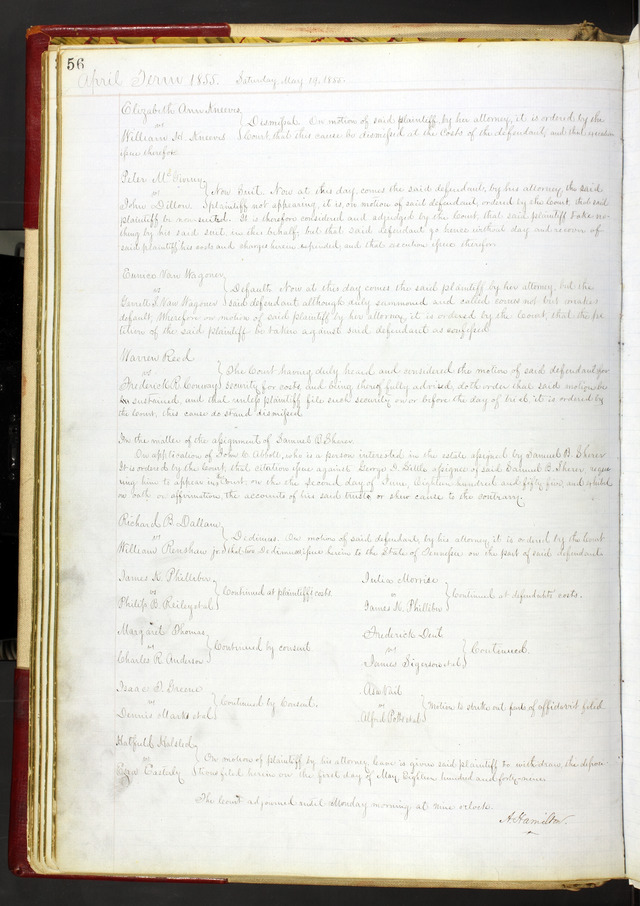 56
April Term 1855. Saturday, May 19, 1855.
Elizabeth Ann Kneevis,
vs } Dismissal. On motion of said plaintiff, by her attorney, it is ordered by the
William W. Kneevis Court that this cause be dismissed at the costs of the defendant, and that execution
issue therefor.
Peter McGinny,
vs } Non Suit. Now at this day, comes the said defendant, by his attorney, the said
John Dillon. plaintiff not appearing, it is, on motion of said defendant, ordered by the Court that said
plaintiff be non-suited. It is therefore considered and adjudged by the Court, that said plaintiff take no-
thing by his said suit in this behalf, but that said defendant go hence without day and recover of
said plaintiff his costs and charges herein expended, and that execution issue therefor.
Eunice Van Wagoner,
vs } Default. Now at this day comes the said plaintiff by her attorney, but the
Garrett J. Van Wagoner said defendant although duly summoned and called comes not but makes
default, Wherefore on motion of said plaintiff by her attorney, it is ordered by the Court, that the pe-
tition of the said plaintiff be taken against said defendant as confessed.
Warren Reed
vs } The Court having duly heard and considered the motion of said defendant for
Frederick R. Conway security for costs and being thereof fully advised, doth order that said motion be
sustained, and that unless plaintiff file such security on or before the day of trial, it is ordered by
the Court, this cause do stand dismissed.
In the matter of the assignment of Samuel B. Sherer.
On application of John C. Abbott, who is a person interested in the estate assigned by Samuel B. Sherer
It is ordered by the Court, that citation issue against George S. Little assignee of said Samuel B. Sherer requi-
ring him to appear in Court, on the second day of June, Eighteen hundred and fifty five, and exhibit
on oath or affirmation, the accounts of his said trust, or shew cause to the contrary.
Richard B. Dallam,
vs } Dedimus. On motion of said defendant, by his attorney, it is ordered by the Court
William Renshaw jr. that two Dedimus issue herein to the State of Tennessee on the part of said defendant.
James K. Phillibin Julia Morrise
vs } Continued at plaintiffs costs. vs } Continued at defendants costs.
Philip B. Reiley et al. James K. Phillibin
Margaret Thomas, Frederick Deil
vs } Continued by consent vs } Continued.
Charles R. Anderson James Sigerson et al.
Isaac S. Greene Asa Vail
vs } Continued by Consent. vs } Motion to strike out part of affidavit filed.
Dennis Marks et al. Alfred Potts et al.
Hatfield Halsted,
vs } On motion of plaintiff by his attorney leave is given said plaintiff to withdraw the deposi-
Easterly tions filed herein on the first day of May Eighteen hundred and forty-nine.
The Court adjourned until Monday morning at nine o'clock.
A. Hamilton.